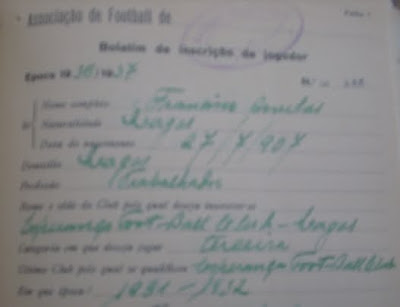 Associação de Football de
Folha
Boletim de inscrição de jogador
Época 1936/1937
Nome completo Francisco
Naturalidade Lagos
Data do nascimento 27/7/907
Domicilio Lagos
Profissão Trabalhador
Nome e séde do Club pelo qual deseja inscrever-se
Esperança Foot-Ball Club - Lagos
Categoria em que deseja jogar terceira
Último Club pelo qual se qualificou Esperança Foot-Ball Club
Em que época? 1931-1932